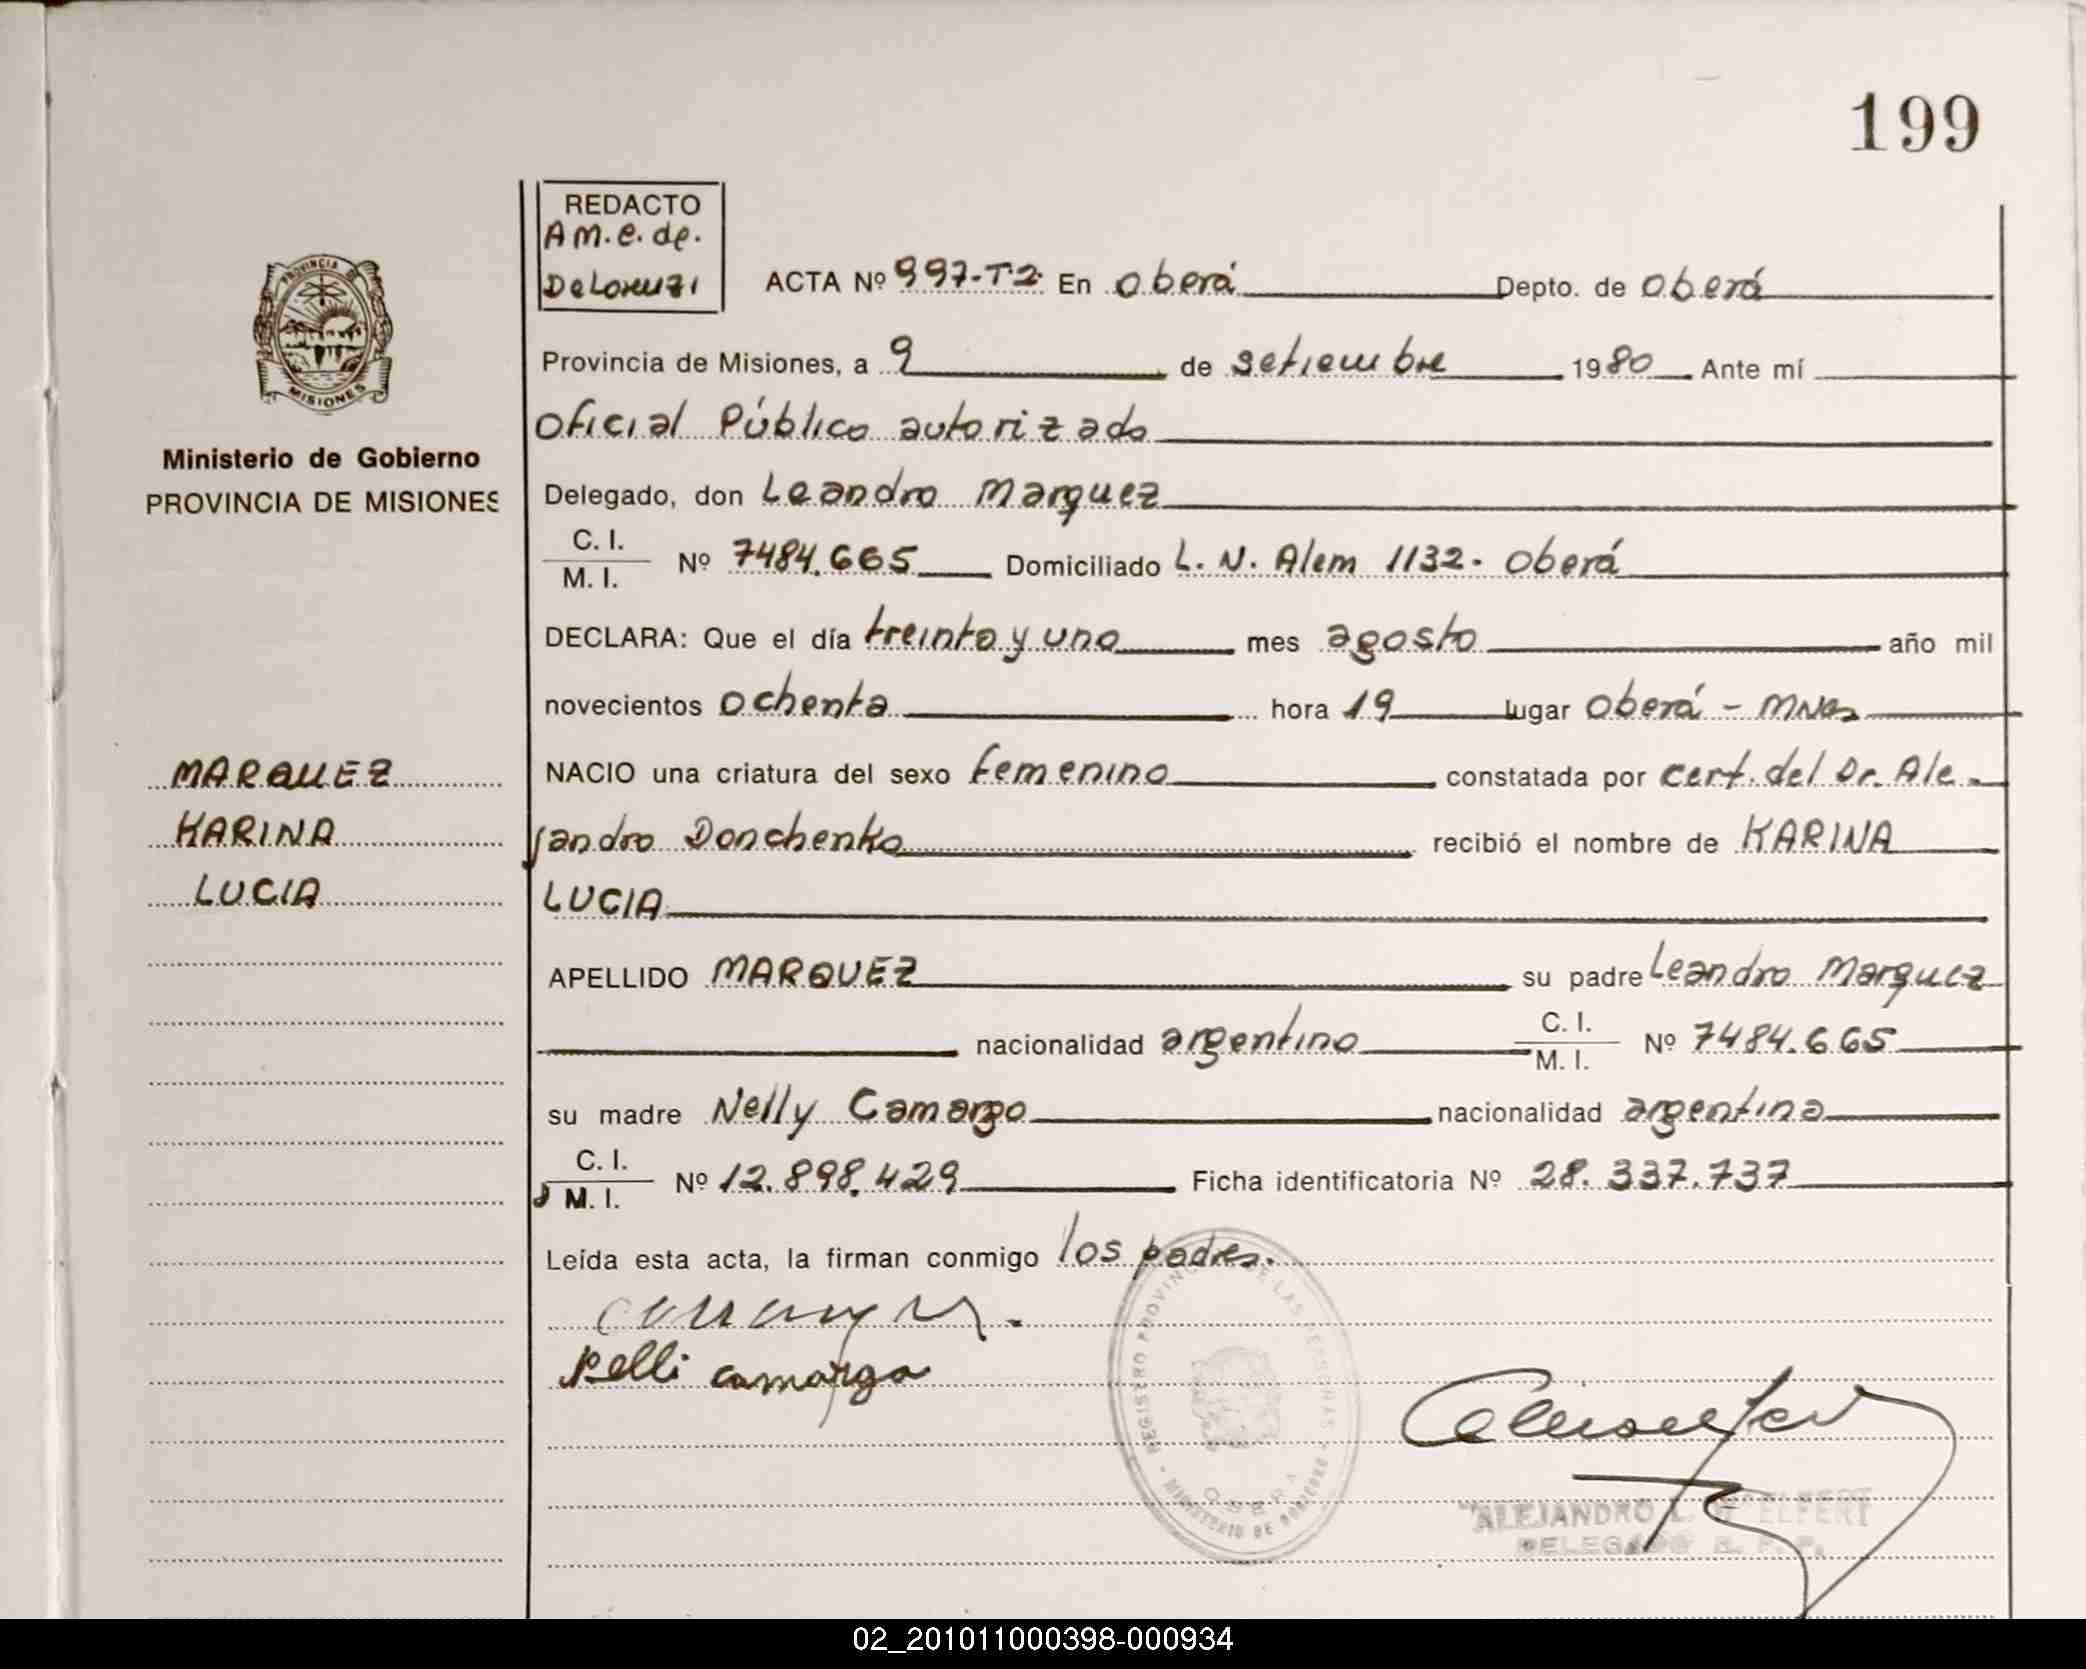 199
REDACTO
Am.e.de.
DeLorenzi
ACTA Nº 997-T2 En Oberá Depto. de Oberá
Provincia de Misiones, a 9 de setiembre 1980 Ante mí
Oficial Público autorizado
Delegado, don Leandro Marquez
C. I.
M. I. Nº 7484.665 Domiciliado L. N. Alem 1132. Oberá
DECLARA: Que el día treinta y uno mes agosto año mil
novecientos ochenta hora 19 lugar Oberá - Mnes
NACIO una criatura del sexo femenino constatada por cert. del Dr. Ale-
jandro Donchenko recibió el nombre de KARINA
LUCIA
APELLIDO MARQUEZ su padre Leandro Marquez
nacionalidad argentino C. I. M. I. Nº 7484.665
su madre Nelly Camargo nacionalidad argentina
C. I.
M. I. Nº 12.898.429 Ficha identificatoria Nº 28.337.737
Leída esta acta, la firman conmigo los padres.
Nelli camargo
PROVINCIA DE
MISIONES
Ministerio de Gobierno
PROVINCIA DE MISIONES
MARQUEZ
KARINA
LUCIA
REGISTRO PROVINCIAL DE LAS PERSONAS
OBERA
MINISTERIO DE GOBIERNO
ALEJANDRO L.
DELEGADO R. P. P.
02_201011000398-000934